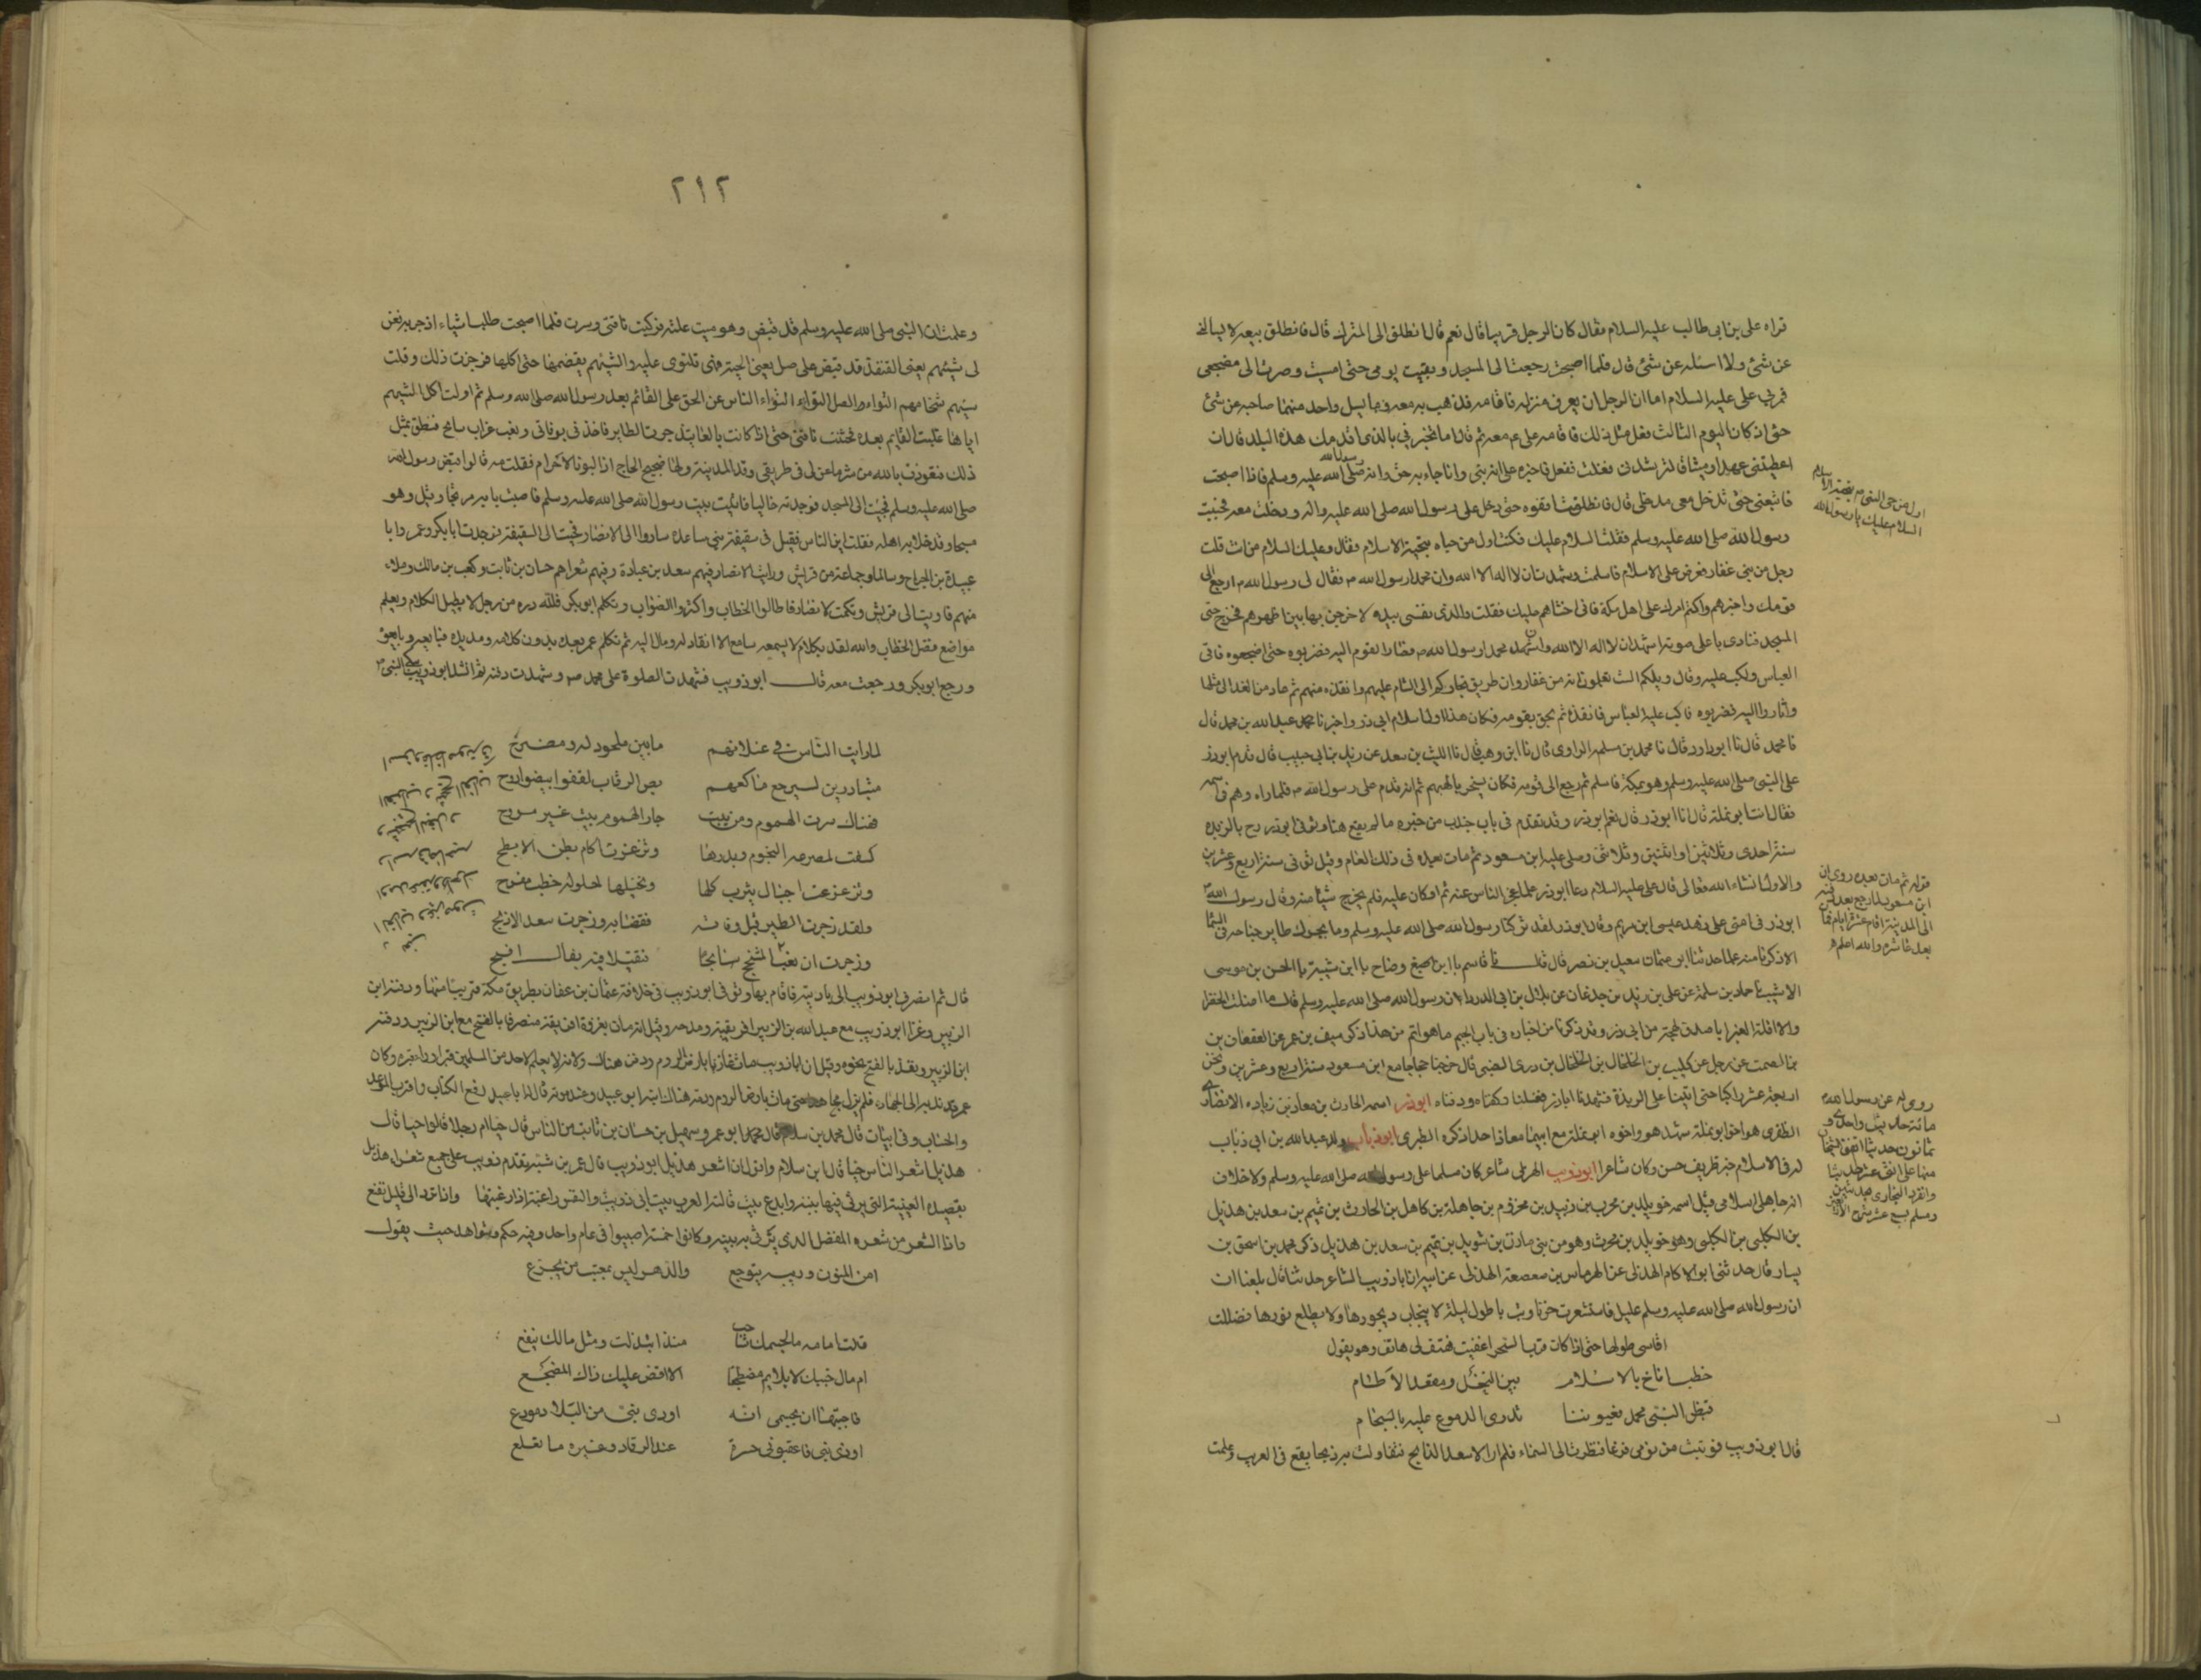 فراه على بن ابى طالب عليه السلام فقال كان الرجل قريبا قال نعم قال انطلق الى المنزل قال فانطلق بيعه لا يسالنى
عن شئ ولا اسئله عن شئ قال فلما اصبحت رجعت الى المسجد وبقيت يومى حتى امسيت وصرت الى مضجعى
فمر بى على عليه السلام اما ان الرجل ان يعرف منزله فاقامه فذهب به معه وما يسل واحد منهما صاحبه عن شئ
حتى اذ كان اليوم الثالث فعل مثل ذلك فاقامه على ع معه ثم قال اما تخبرنى بالذى اقدمك هذا البلد قال ان
اعطيتنى عهدا وميثاقا لترشدنى فعلت ففعل فاخبره على انه نبى وانما جاء به حق وانه رسول الله صلى الله عليه وسلم فاذا اصبحت
فاتبعنى حتى تدخل معى مدخلى قال فانطلقت اقفوه حتى دخل على رسول الله صلى الله عليه واله ودخلت معه فحييت
رسول الله صلى الله عليه وسلم فقلت السلام عليك فكنت اول من حياه بتحية الاسلام فقال وعليك السلام من انت قلت
رجل من بنى غفار فعرض على الاسلام فاسلمت وشهدت ان لا اله الا الله وان محمدا رسول الله م فقال لى رسول الله م ارجع الى
قومك واخبرهم واكتم امرك على اهل مكة فانى اخشاهم عليك فقلت والذى نفسى بيده لاخرجن بها بين اظهرهم فخرج حتى
المسجد فنادى باعلى صوته اشهد ان لا اله الا الله واشهد ان محمد رسول الله م فثار القوم اليه فضربوه حتى اضجعوه فاتى
العباس واكب عليه وقال ويلكم الست تعلمون انه من غفار وان طريق تجارتكم الى الشام عليهم وانقذه منهم ثم عاد من الغد الى مثلها
وثاروا اليه فضربوه فاكب عليه العباس فانقذه ثم لحق بقومه فكان هذا اول اسلام ابى ذر واخبرنا محمد عبد الله بن محمد قال
نا محمد قال نا ابو داود قال نا محمد بن سلمه المرادى قال نا ابن وهب قال نا الليث بن سعد عن يزيد بن ابى حبيب قال قدم ابو ذر
على النبى صلى الله عليه وسلم وهو بمكة فاسلم ثم رجع الى قومه فكان يسخر بالهتهم ثم انه قدم على رسول الله م فلما راه وهم فى اسمه
فقال انت ابو نملة قال انا ابو ذر قال نعم ابو ذر وقد تقدم فى باب جندب من خبره ما لم يقع هنا وتوفى ابو ذر رح بالربذه
سنة احدى وثلاثين او اثنتين وثلاثين وصلى عليه ابن مسعود ثم مات بعده فى ذلك العام وقيل توفى سنة اربع وعشرين
والاول انشاء الله تعالى قال على عليه السلام وعا ابو ذر علما عجز الناس عنه ثم اوكان عليه فلم يخرج شيئا منه وقال رسول الله م
ابو ذر فى امتى على زهد عيسى ابن مريم وقال ابو ذر لقد تركنا رسول الله صلى الله عليه وسلم وما يحرك طاير جناحه فى السماء
الا ذكرنا منه علما حدثنا ابو عثمان سعيد بن نصر قال قال نا قاسم نا ابن اصبغ وضاح نا ابن شيبة نا الحسن بن موسى
الاشيب نا حماد بن سلمة عن على بن زيد بن جدعان عن بلال بن ابى الدرداء ان رسول الله صلى الله عليه وسلم قال ما اظلت الخضرا
ولا اقلت الغبرا باصدق لهجة من ابى ذر وقد ذكرنا من اخباره فى باب الجيم ما هو اتم من هذا ذكر سيف بن عمر عن القعقاع بن
بن الصمت عن رجل عن كليب بن الحلحال بن الحلحال بن درى الضبى قال خرجنا حجاجا مع ابن مسعود سنة اربع وعشرين ونحن
اربعة عشر راكبا حتى اتينا على الربذة فشهدنا اباذر فغسلناه وكفناه ودفناه ابو ذر اسمه الحارث بن معاذ بن زياده الانصارى
الظفرى هو اخو ابو نملة شهد هو واخوه ابو نملة مع ابيهما معاذ احدا ذكره الطبرى ابو ذباب والد عبد الله بن ابى ذباب
له فى الاسلام خبر ظريف حسن وكان شاعرا ابو ذويب الهذلى شاعر كان مسلما على رسول الله صلى الله عليه وسلم ولا خلاف
انه جاهلى اسلامى قيل اسمه خويلد بن محرب بن زبيد بن مخزوم بن جاهلة بن كاهل بن الحارث بن تميم بن سعد بن هذيل
بن الكلبى من الكلبى وهو خويلد بن محرث وهو من بنى مازن بن سويد بن تميم بن سعد بن هذيل ذكر محمد بن اسحق بن
يسار قال حدثنى ابو الاكام الهذلى عن الهرماس بن صعصعة الهذلى عن ابيه ان ابا ذويب الشاعر حدثنا قال بلغنا ان
ان رسول الله صلى الله عليه وسلم عليل فاستشعرت حزنا وبت باطول ليلة لا ينجاب ديجورها ولا يطلع نورها فضللت
اقاسى طولها حتى اذا كان قرب السحر اغفيت فهتف لى هاتف وهو يقول
خطب اناخ بالاسلام بين النخل ومعقد الاطام
قبض النبى محمد فعيوننا تذرى الدموع عليه بالسجام
قال ابو ذويب فوثبت من نومى فزعا فنظرت الى السماء فلم ار الا سعد الذابح فتفاولت به ذبحا يقع فى العرب وعلمت
اول من حى النبى م بتحية الاسلام
السلام عليك يا رسول الله
قوله ثم مات بعده روى ان
ابن مسعود لما رجع بعد دفنه
الى المدينة اقام عشرة ايام فمات
بعد عاشره والله اعلم
روى له عن رسول الله
مائة حديث واحد و
ثمانون حديثا اتفق الشيخان
منها على اثنى عشر حديثا
وانفرد البخارى بحديثين
ومسلم بسبع عشر
٢١٢
وعلمت ان النبى صلى الله عليه وسلم قد قبض وهو ميت علته فركبت ناقتى وسرت فلما اصبحت طلبت شياء ازجر به فعن
لى شيهم يعنى القنفذ قد قبض على صل يعنى الحية فهى تلتوى عليه والشيهم يقضمها حتى اكلها فزجرت ذلك وقلت
شيهم شئ مهم التواء والصل التواء التواء الناس عن الحق على القائم بعد رسول الله صلى الله وسلم ثم اولت اكل الشيهم
اياها غلبت القايم بعده فحثثت ناقتى حتى اذا كانت بالغابة زجرت الطاير فاخذنى بوفاته ونعب غراب سانح فنطق بمثل
ذلك فتعوذت بالله من شر ما عن لى فى طريقى وقد المدينة ولها ضجيج الحاج اذا لبوا بالاحرام فقلت مه قالوا قبض رسول الله
صلى الله عليه وسلم فجئت الى المسجد فوجدته خاليا فاتيت بيت رسول الله صلى الله عليه وسلم فاصبت بابه مرتجا وقيل هو
مسجا وقد خلا به اهله فقلت اين الناس فقيل فى سقيفة بنى ساعدة ساروا الى الانصار فجيت الى السقيفة فوجدت ابا بكر وعمر وابا
عبيدة بن الجراح وسالما وجماعة من قريش ورايت الانصار فيهم سعد بن عبادة وفيهم شعراهم حسان بن ثابت وكعب بن مالك وملاء
منهم فاويت الى قريش وتكلمت الانصار فاطالوا الخطاب واكثروا الصواب وتكلم ابو بكر فلله دره من رجل لا يطيل الكلام ويعلم
مواضع فصل الخطاب والله لقد بكلام لا يسمعه سامع الا انقاد له ومال اليه ثم تكلم عمر بعده بدون كلامه ومد يده فبايعه وبايعوه
ورجع ابو بكر ورجعت معه قال ابو ذويب فشهدت الصلوة على محمد ص وشهدت دفنه ثم انشد ابو ذويب يبكى النبى م
لما رايت الناس فى عسلانهم ما بين ملحود له ومضرح
متبادرين لسرجع باكفهم نص الرقاب لفقد ابيض اروح
فهناك صرت الهموم ومن يبيت جار الهموم يبيت غير مروح
كسفت لمصرعه النجوم وبدرها وتزعزعت اكام بطن الابطح
وتزعزعت اجبال يثرب كلها ونخيلها لحلول خطب مفدح
ولقد زجرت الطير قبل وفاته فقضا به وزجرت سعد الاذبح
وزجرت ان نعب المشحج سانحا نقيلا فيه بفال افيح
قال ثم انصرف ابو ذويب الى باديته فاقام بها وتوفى ابو ذويب فى خلافة عثمان بن عفان بطريق مكة قريبا منها ودفنه ابن
الزبير وغزا ابو ذويب مع عبد الله بن الزبير افريقية ومدحه وقيل انه مات بغزوة افريقية منصرفا بالفتح مع ابن الزبير ودفنه
ابن الزبير وبعد بالفتح نحوه وقيل ان ابا ذويب مات غازيا بارض الروم ودفن هناك وانه لا يعلم لاحد من المسلمين قبر وراء قبره وكان
عمر قد ندبه الى الجهاد فلم يزل مجاهدا حتى مات بارض الروم ودفنه هناك ابنه ابو عبيد وعند موته قال له ابا عبيد رفع الكتاب واقترب الموعد
والحساب وفى ابيات قال محمد بن سلام قال محمد ابو عمرو سهيل بن حسان بن ثابت من الناس قال حيا ام رجلا قالوا حيا قال
هذيل اشعر الناس حيا قال ابن سلام واقول ان اشعر هذيل ابو ذويب قال عمر بن شبه تقدم ذويب على جميع شعراء هذيل
بقصيده العينية التى يرثى فيها بنيه وابدع بيت قالته العرب بيت ابى ذويب والنفس راغبة اذا رغبتها واذا ترد الى قليل تقنع
وهذا الشعر من شعره المفضل الذى يرثى به بنيه وكانوا خمسة اصيبوا فى عام واحد وفيه حكم وشواهد حيث يقول
امن المنون وريبه يتوجع والدهر ليس بمعتب من يجزع
قالت امامه ما لجسمك شاحب منذ ابتذلت ومثل مالك ينفع
ام مال جنبك لا يلايم مضجعا الا اقض عليك ذاك المضجع
فاجبتها ان بجسمى انه اودى بنى من البلاد ودعوا
اودى بنى فاعقبونى حسرة عند الرقاد وعبرة ما تقلع